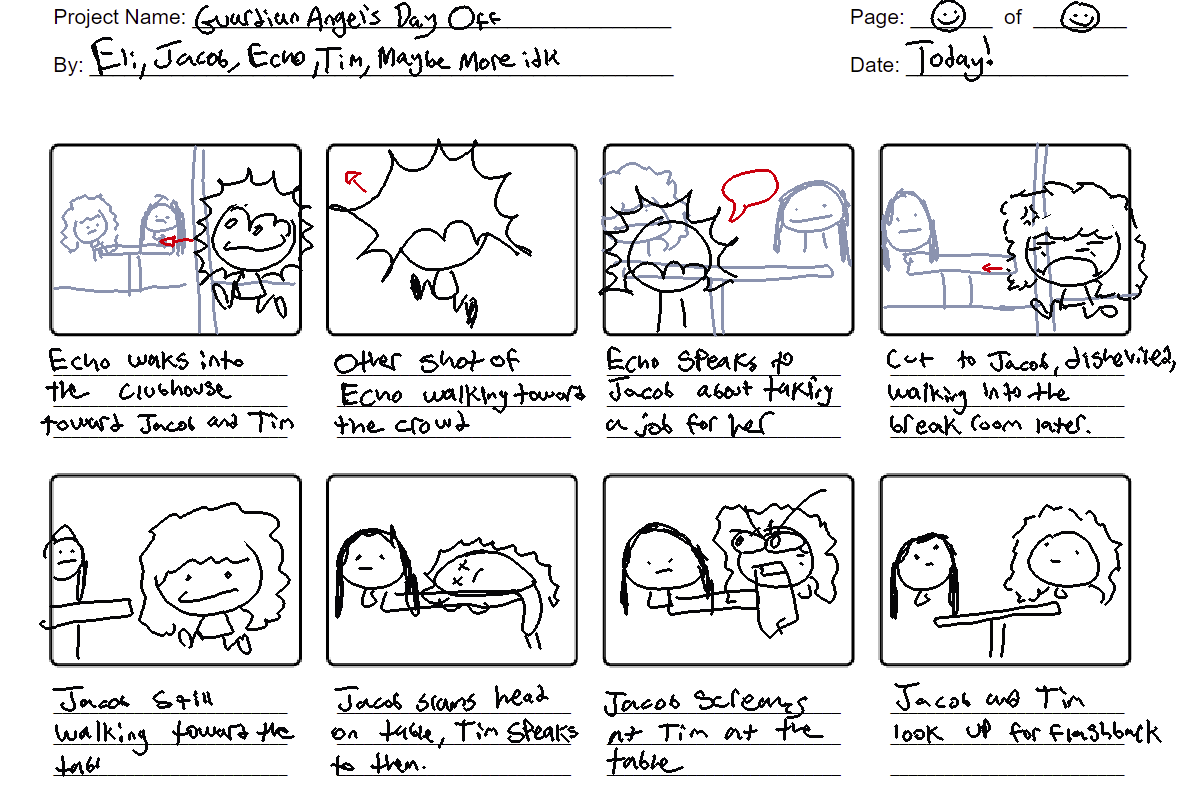 Project Name: Guardian Angel's Day Off
Page: of
By: Eli, Jacob, Echo, Tim, Maybe More idk
Date: Today!
Echo walks into
the clubhouse
toward Jacob and Tim
Other shot of
Echo walking toward
the crowd
Echo speaks to
Jacob about taking
a job for her
Cut to Jacob, disheviled,
walking into the
break room later.
Jacob still
walking toward the
tabl
Jacob slams head
on table, Tim speaks
to them.
Jacob screams
at Tim at the
table
Jacob and Tim
look up for flashback